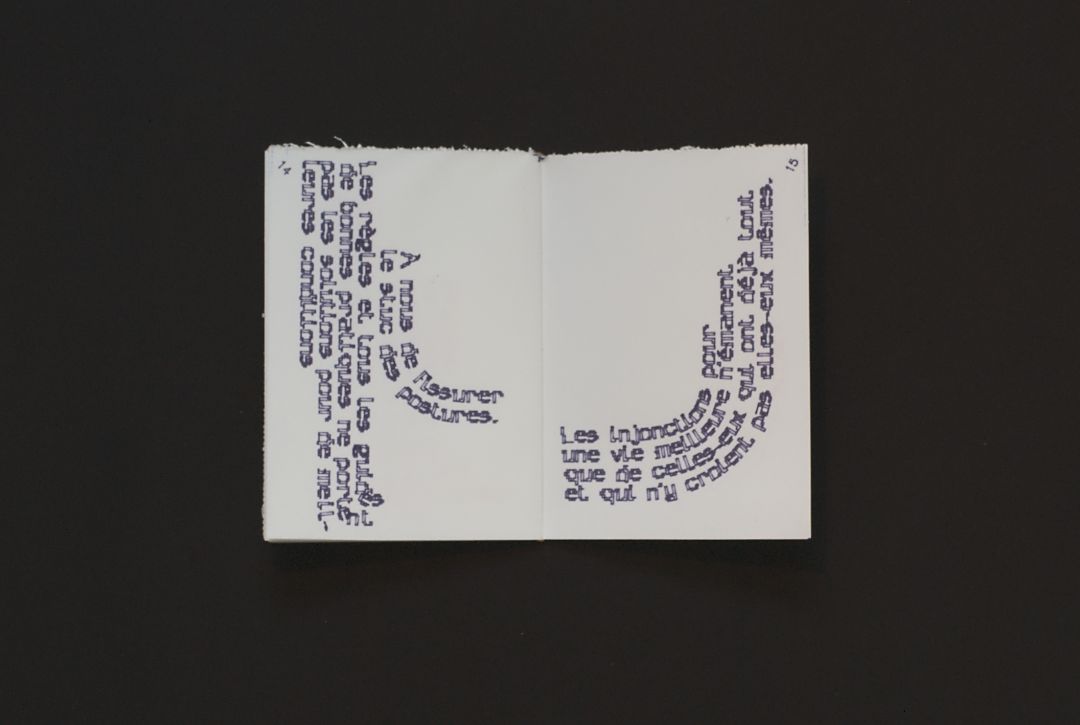 14
Les règles et tous les guides
de bonnes pratiques ne portent
pas les solutions pour de meil-
leures conditions
À nous de fissurer
le stuc des postures.
15
Les injonctions pour
une vie meilleure n'émanent
que de celles-eux qui ont déjà tout
et qui n'y croient pas elles-eux mêmes.